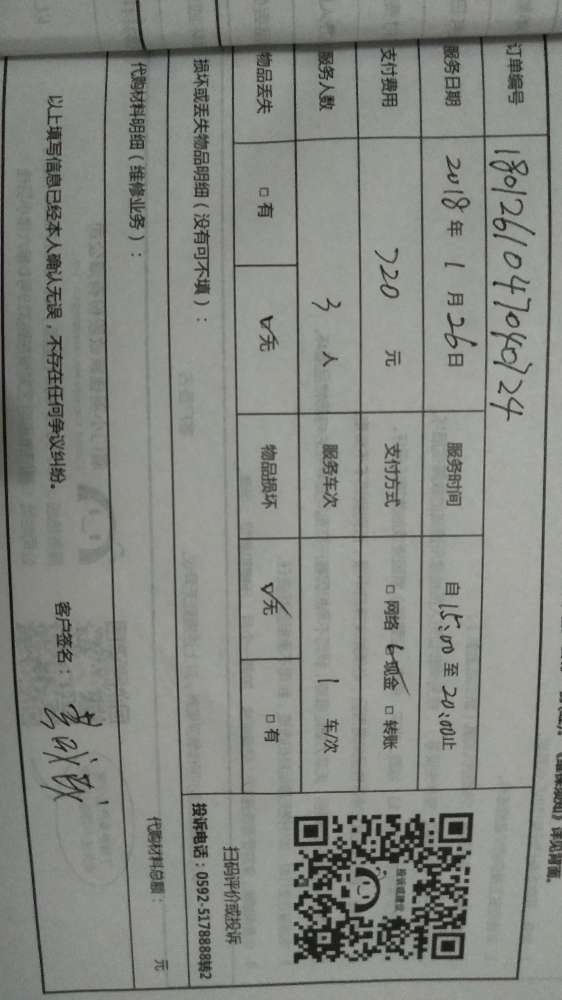 《维保须知》详见背面。
订单编号 1801261047040724
服务日期 2018年1月26日 服务时间 自15:00至20:00止
支付费用 720元 支付方式 □网络 ☑现金 □转账
服务人数 3人 服务车次 1车/次
物品丢失 □有 ☑无 物品损坏 ☑无 □有
投诉或建议
扫码评价或投诉
投诉电话:0592-5178888转2
损坏或丢失物品明细(没有可不填):
代购材料明细(维修业务):
代购材料总额: 元
以上填写信息已经本人确认无误,不存在任何争议纠纷。 客户签名: